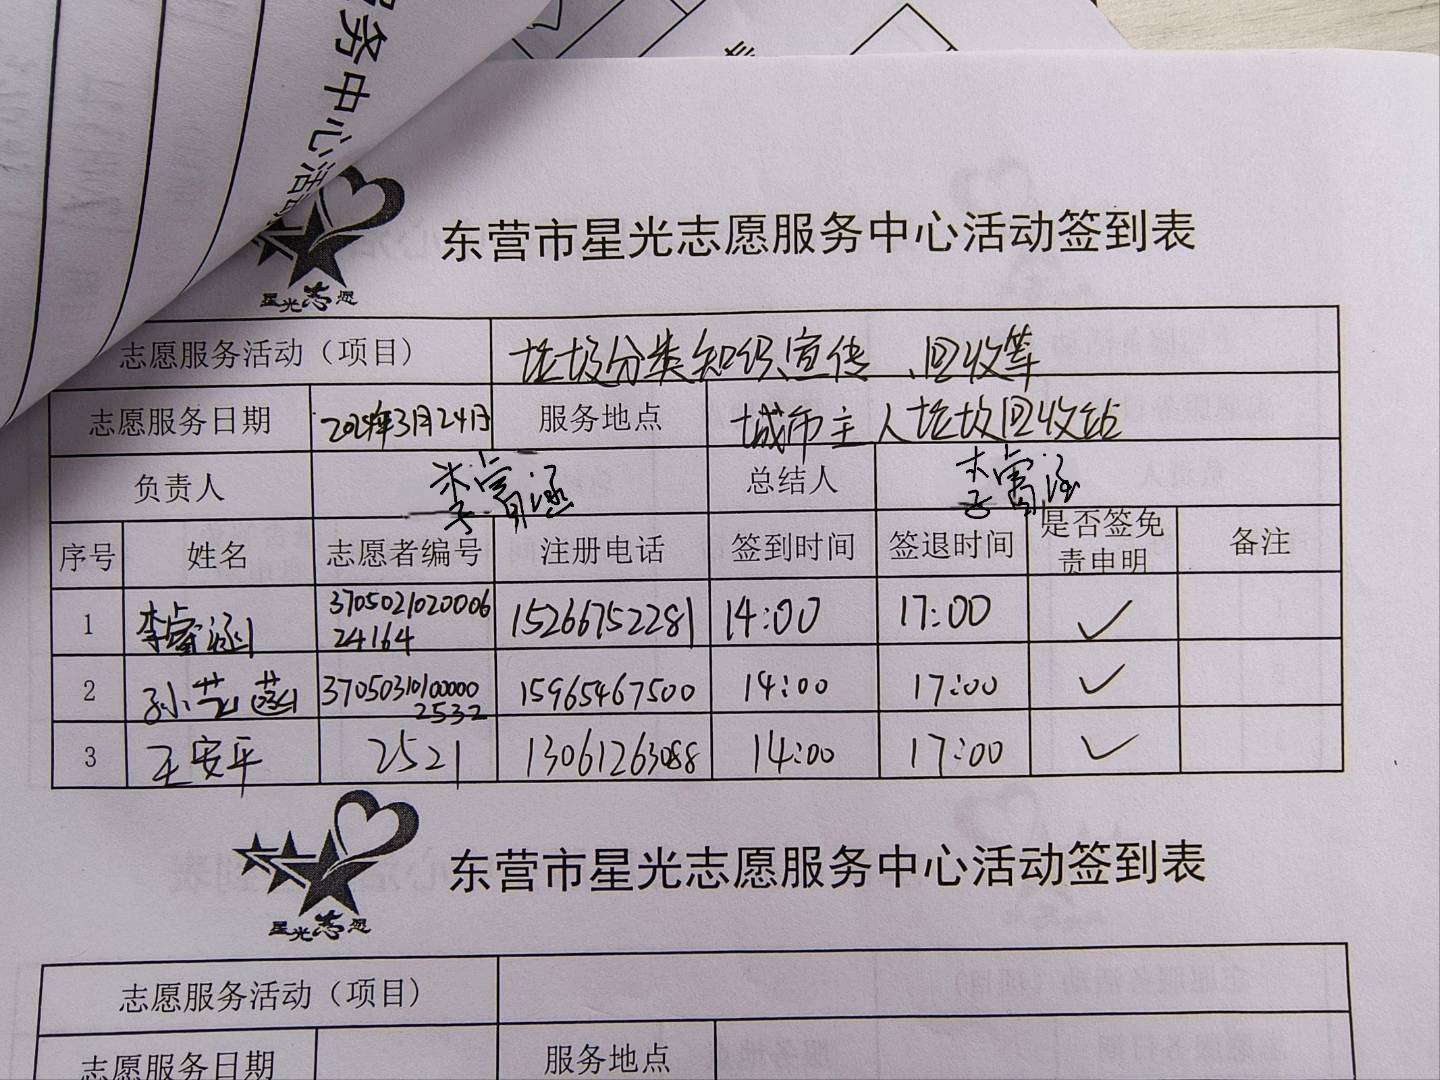 服务中心活动
东营市星光志愿服务中心活动签到表
星光志愿
志愿服务活动（项目） 垃圾分类知识宣传、回收等
志愿服务日期 2024年3月24日 服务地点 城市主人垃圾回收站
负责人 李睿涵 总结人 李睿涵
序号 姓名 志愿者编号 注册电话 签到时间 签退时间 是否签免责申明 备注
1 李睿涵 370502102000624164 15266752281 14:00 17:00 ✓
2 孙艺菡 370503101000002532 15965467500 14:00 17:00 ✓
3 王安平 2521 13061263088 14:00 17:00 ✓
东营市星光志愿服务中心活动签到表
星光志愿
志愿服务活动（项目）
志愿服务日期 服务地点